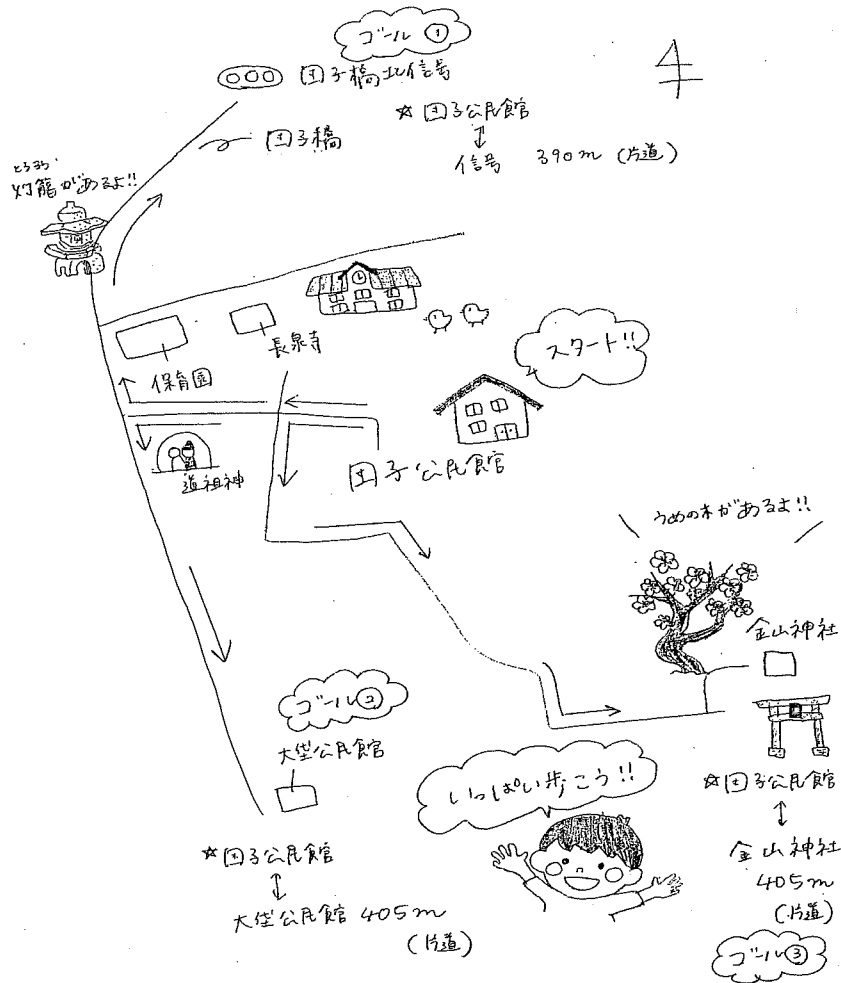 ゴール①
団子橋北信号
北
☆団子公民館
↕
信号 390m (片道)
団子橋
とうろう
灯籠があるよ!!
長泉寺
保育園
スタート!!
道祖神
団子公民館
うめの木があるよ!!
金山神社
ゴール②
大垈公民館
いっぱい歩こう!!
☆団子公民館
↕
大垈公民館 405m
(片道)
☆団子公民館
↕
金山神社
405m
(片道)
ゴール③